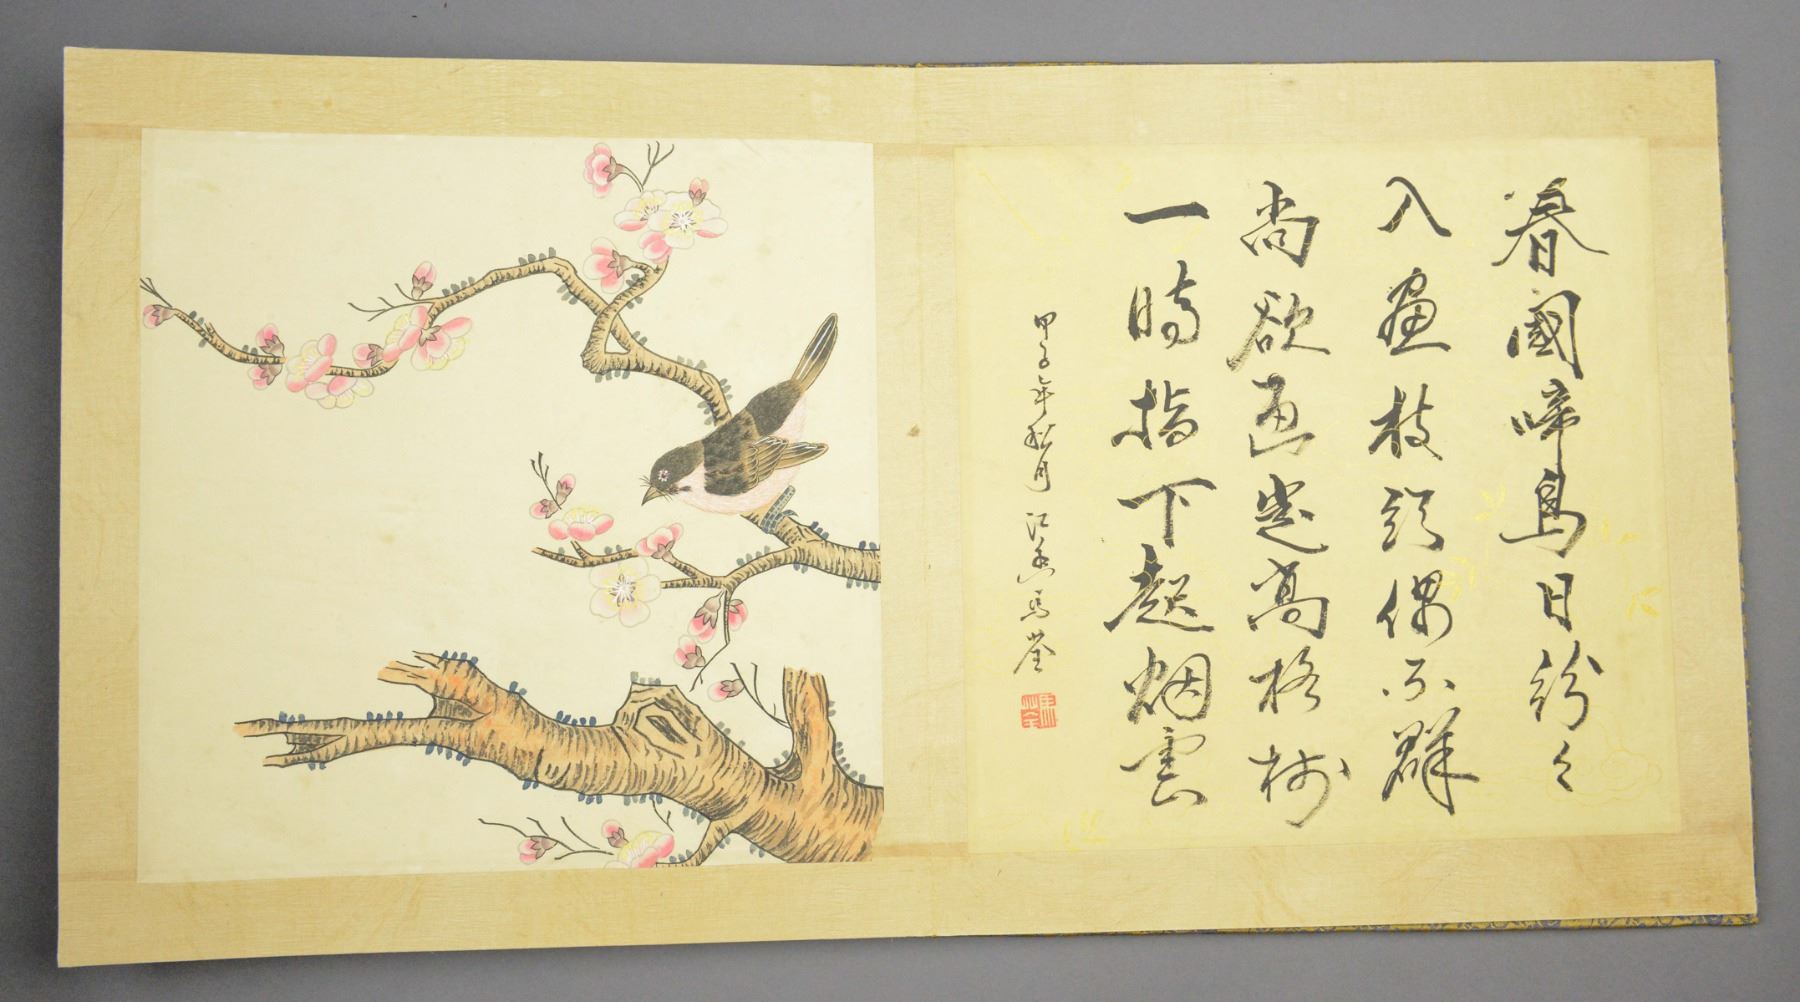 春國啼鳥日紛々
入畫枝頭偶不群
尚欲画些高格樹
一時指下起烟雲
甲子年秋月 江香馬荃
馬荃